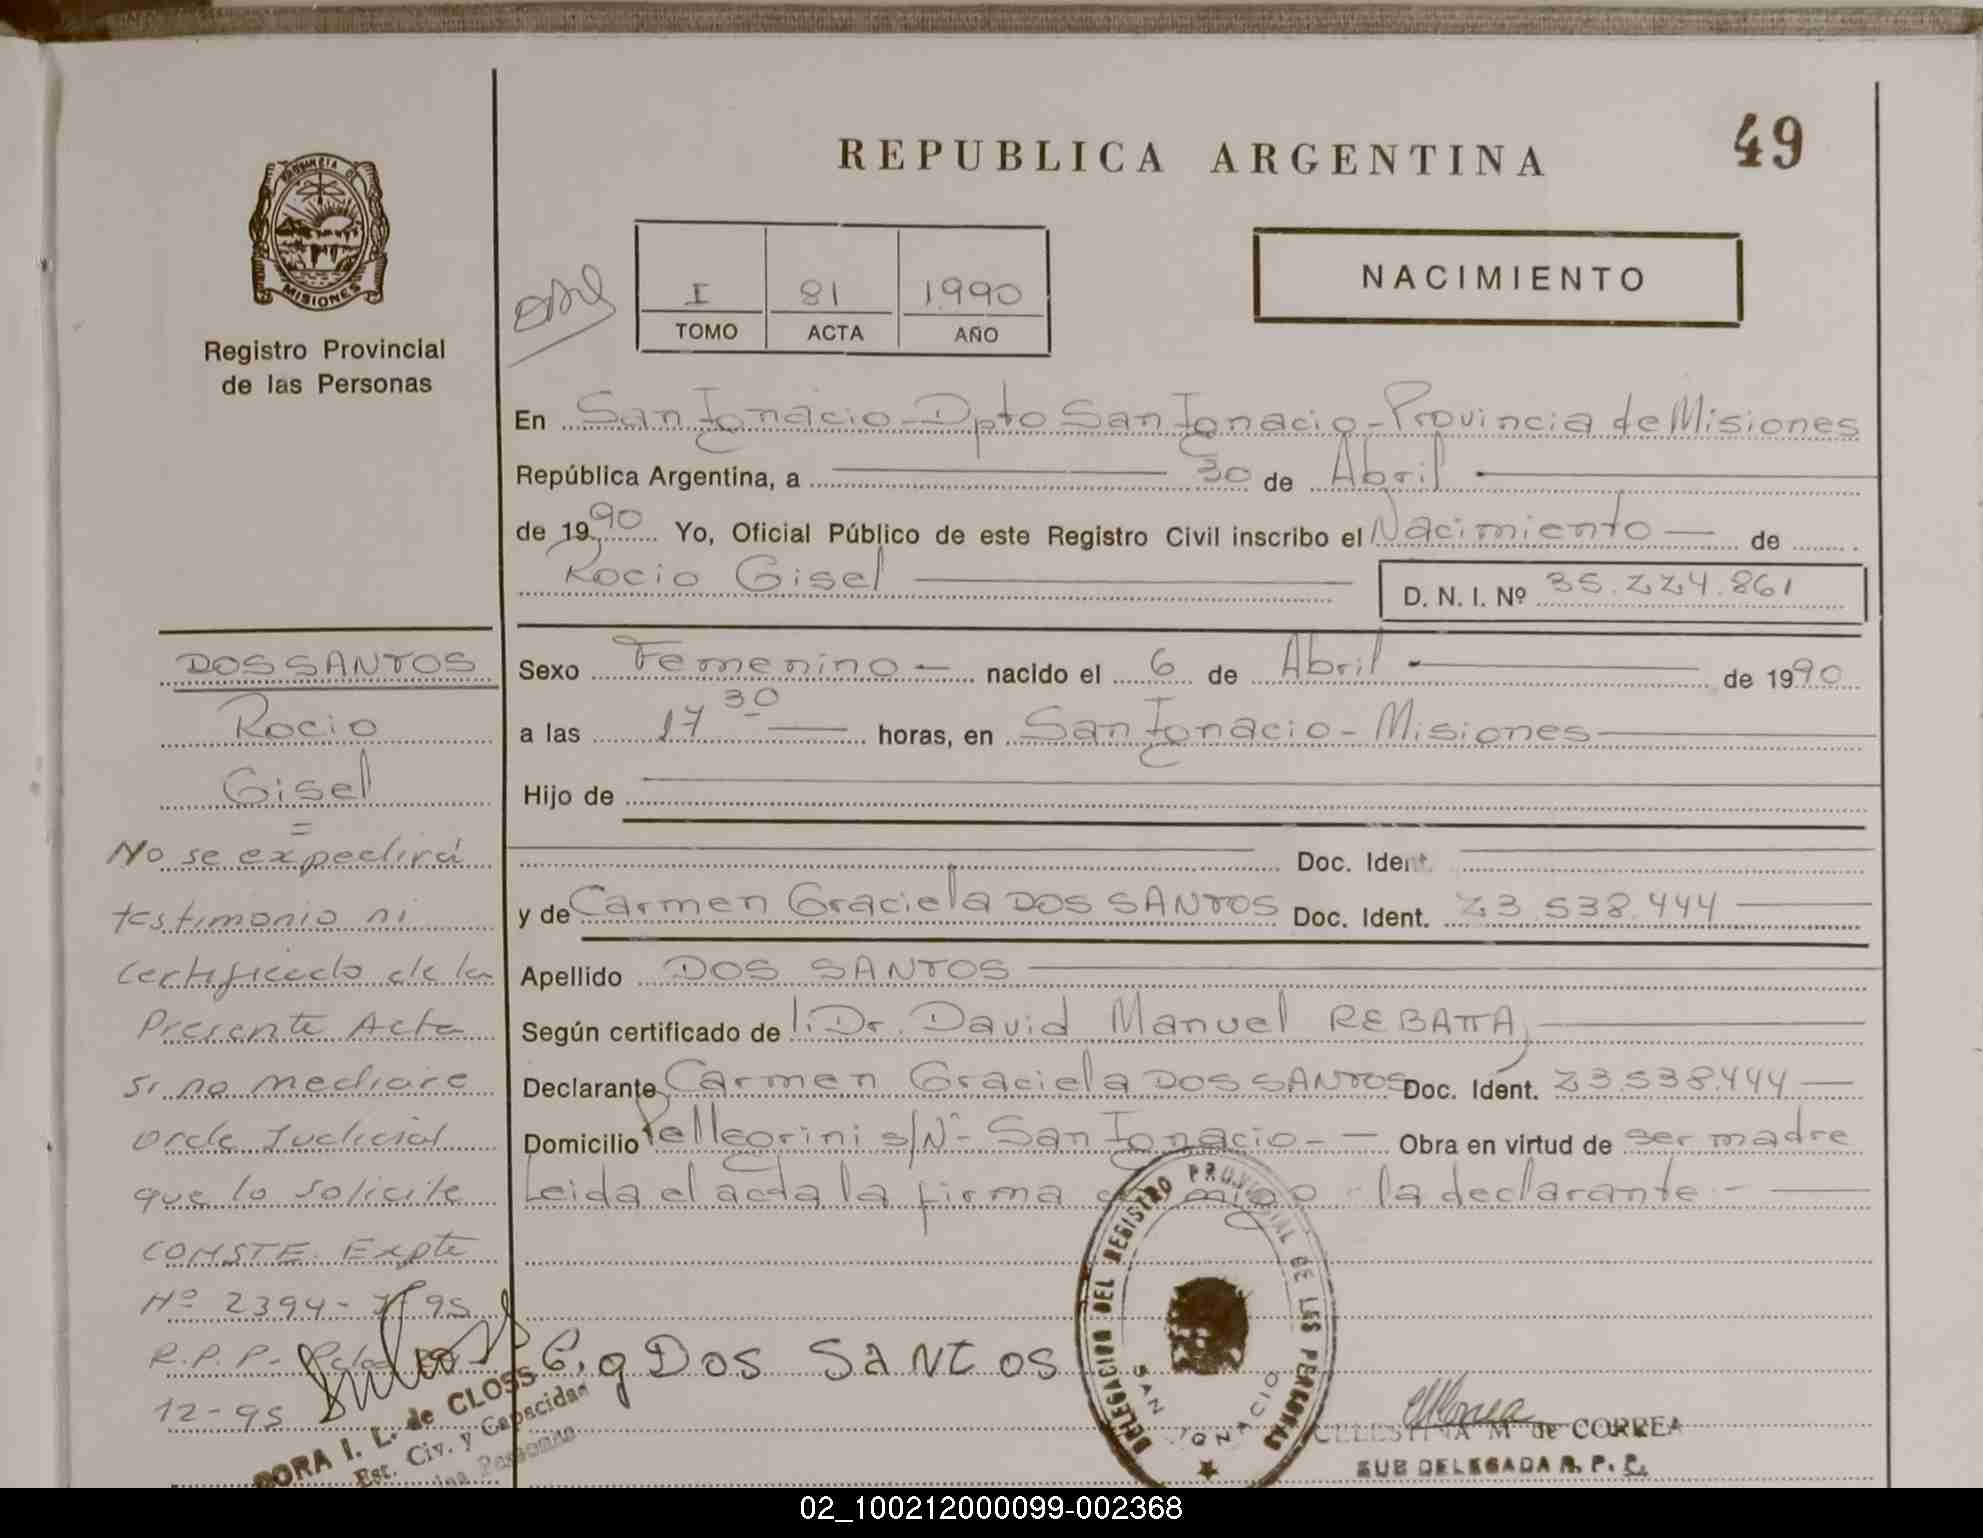 REPUBLICA ARGENTINA
49
PROVINCIA DE
MISIONES
Registro Provincial
de las Personas
I 81 1990
TOMO ACTA AÑO
NACIMIENTO
En San Ignacio - Dpto San Ignacio - Provincia de Misiones
República Argentina, a 30 de Abril
de 1990 Yo, Oficial Público de este Registro Civil inscribo el Nacimiento — de
Rocio Gisel
D. N. I. Nº 35.224.861
Sexo Femenino — nacido el 6 de Abril de 1990
a las 17 30 — horas, en San Ignacio - Misiones
Hijo de
Doc. Ident.
y de Carmen Graciela DOS SANTOS Doc. Ident. 23.538.444
Apellido DOS SANTOS
Según certificado de l: Dr. David Manuel REBATTA,
Declarante Carmen Graciela DOS SANTOS Doc. Ident. 23.538.444 —
Domicilio Pellegrini s/Nº - San Ignacio - — Obra en virtud de ser madre
Leida el acta la firma conmigo la declarante -
DOS SANTOS
Rocio
Gisel
=
No se expedirá
testimonio ni
certificado de la
Presente Acta
si no mediare
orde Judicial
que lo solicite
CONSTE. Expte
Nº 2394- 95
R.P.P.
12-95
DORA I. L. de CLOSS
Est. Civ. y Capacidad
Personas
C. g Dos SANtos
DELEGACION DEL REGISTRO PROVINCIAL DE LAS PERSONAS
SAN IGNACIO
CELESTINA M. de CORREA
SUB DELEGADA R. P. P.
02_100212000099-002368